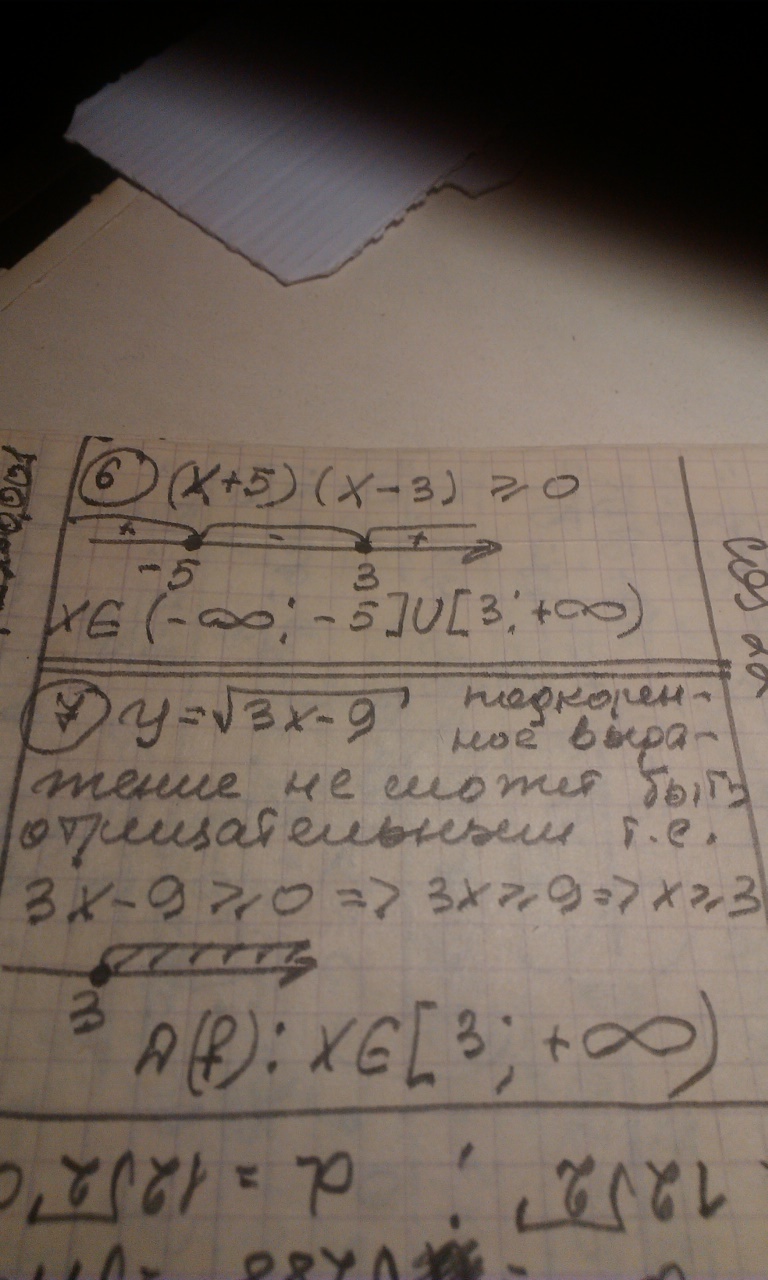 6 (x+5)(x-3) ≥ 0
+ - +
-5 3
x∈(-∞; -5]∪[3; +∞)
7 y=√3x-9 подкорен-
ное выра-
жение не может быть
отрицательным т.е.
3x-9≥0 => 3x≥9 => x≥3
3
D(f): x∈[3; +∞)
12√2 ; d = 12√2